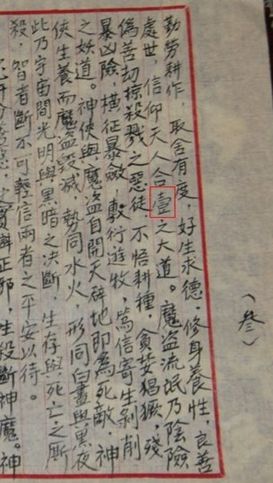 勤勞耕作，取舍有度，好生求德，修身養性，良善
處世，信仰天人合壹之大道。魔盜流氓乃陰險
偽善劫掠殺戮之惡徒，不悟耕種，貪婪猖獗，殘
暴凶險，橫征暴斂，敷行遊牧，篤信寄生剝削
之妖道。神俠與魔盜自開天碑地即為死敵，神
俠生養而魔盜毀滅，勢同水火，形同白晝與黑夜
此乃宇宙間光明與黑暗之決斷，生存與死亡之斷
殺，智者斷不可輕信兩者之平安以待。
正邪，生殺斷神魔。神
（叄）